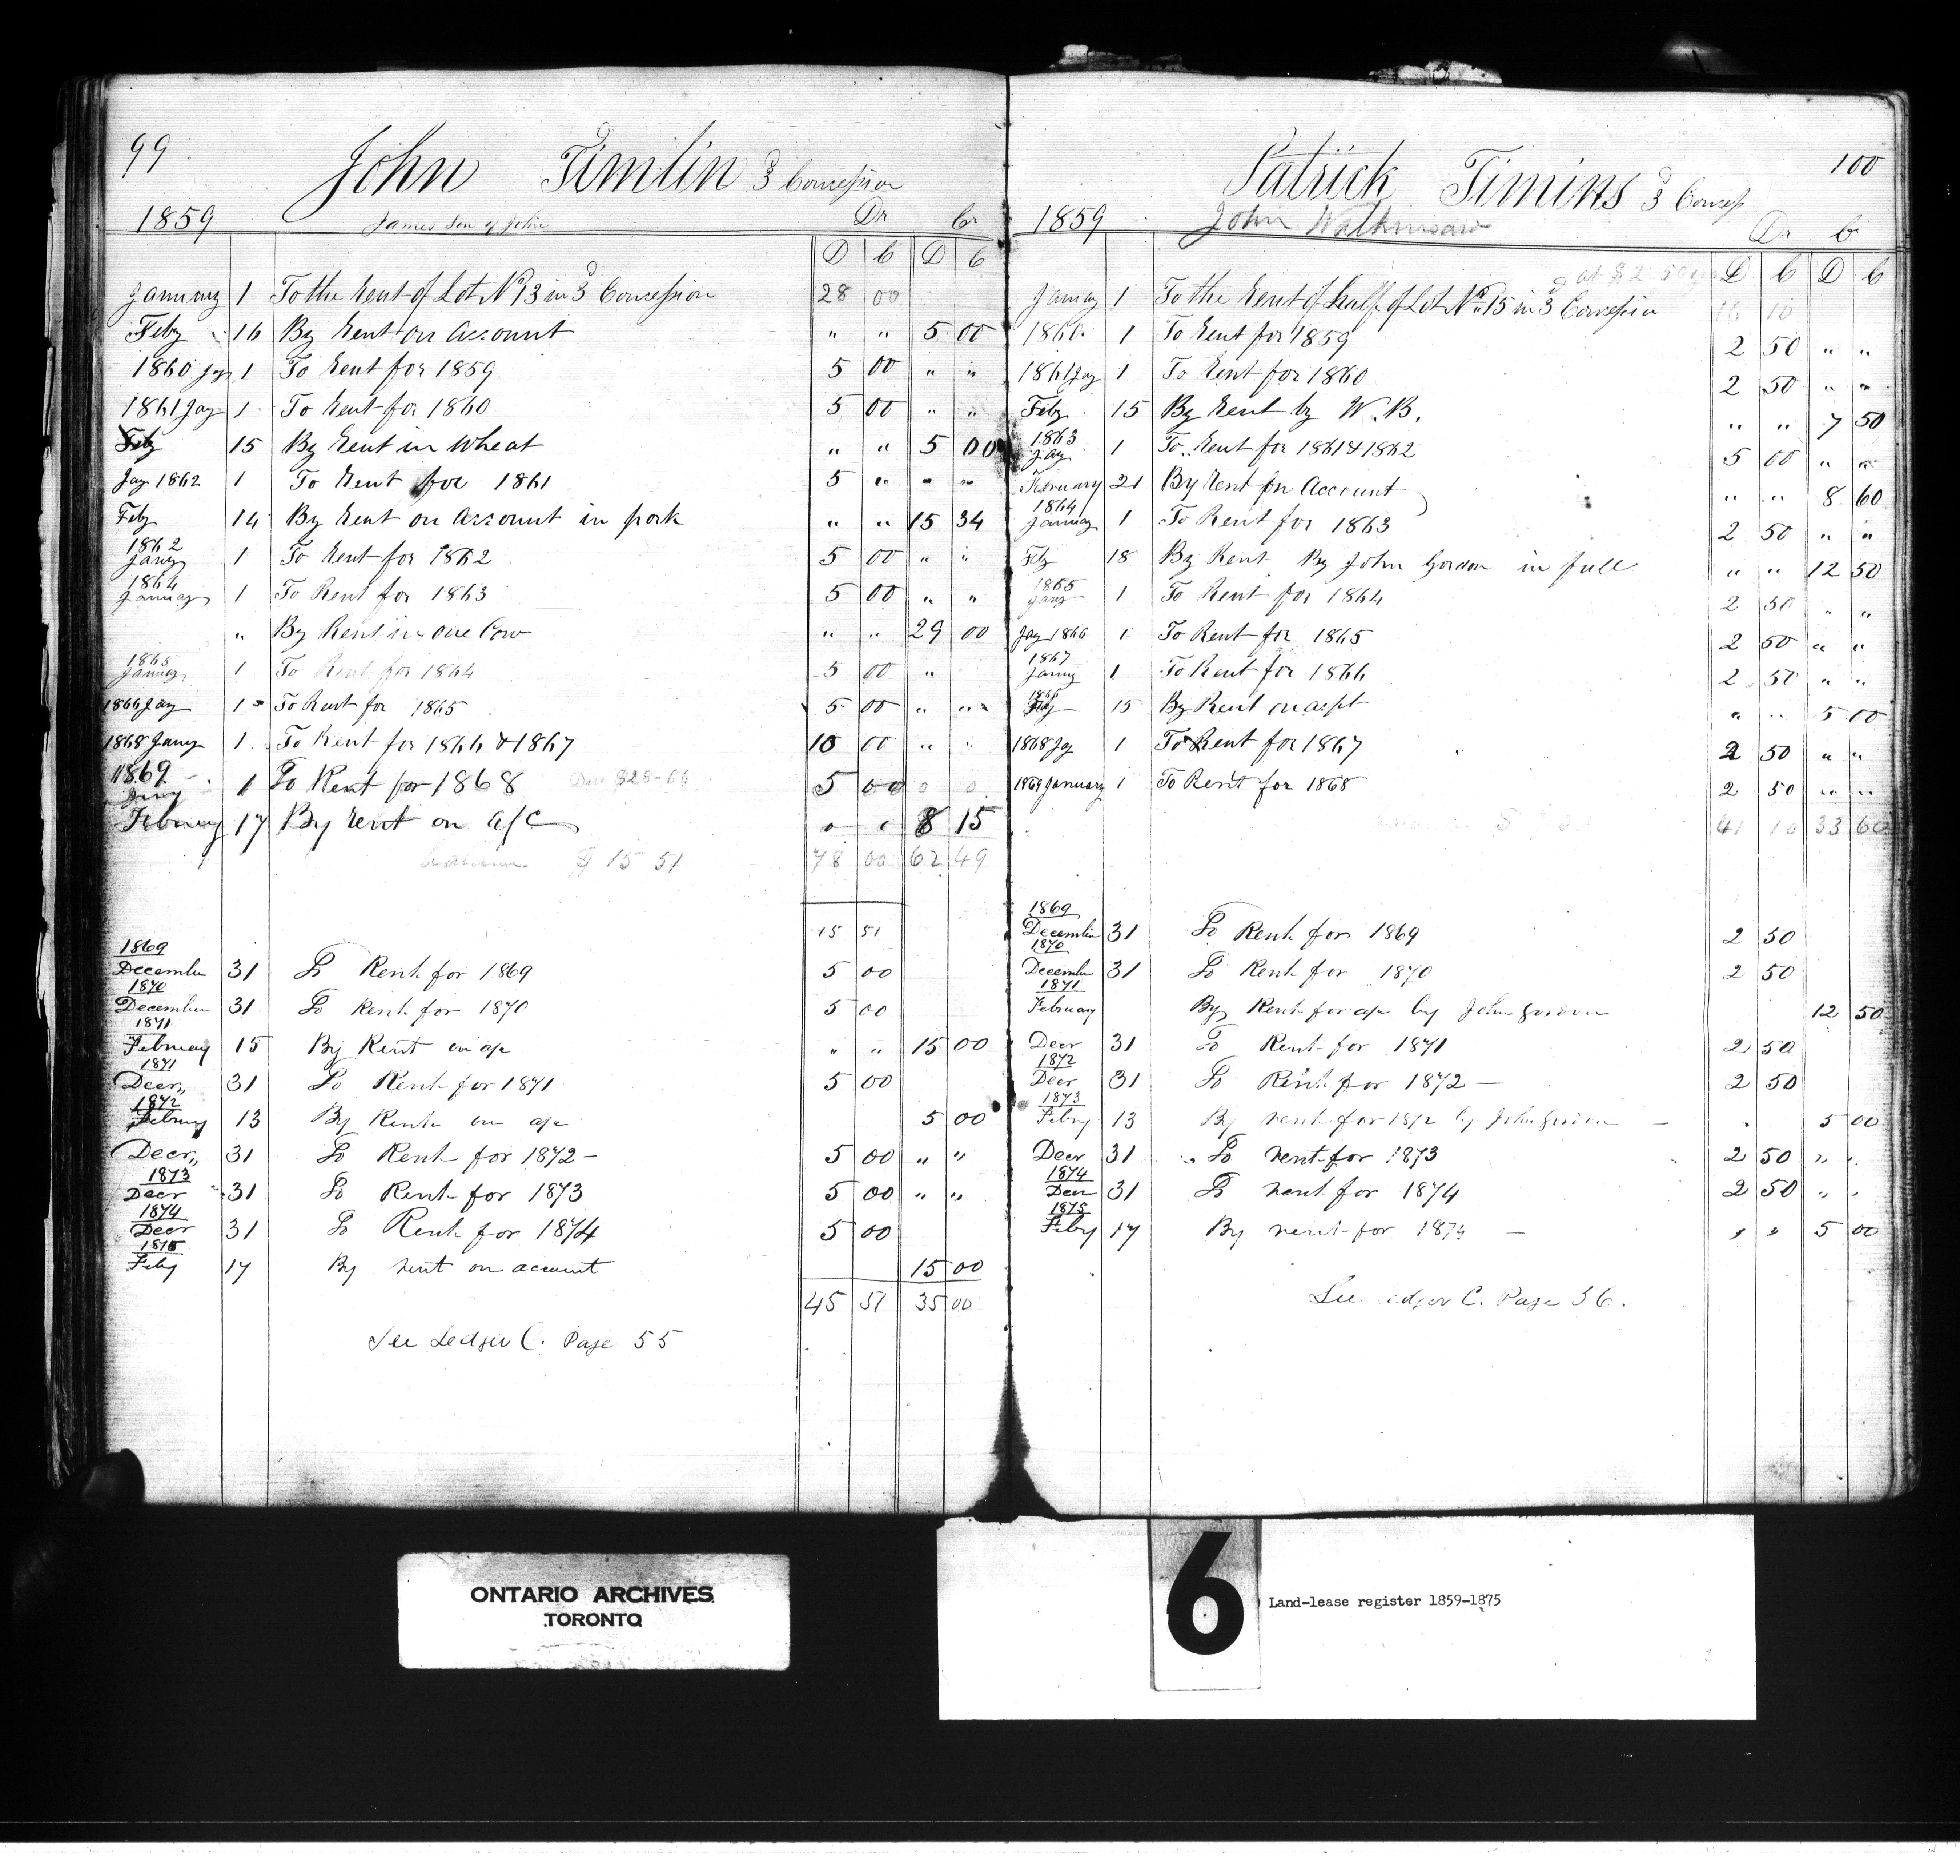 99
John Timlin 3d Concession
1859 James Son of John Dr Cr
D C D C
January 1 To the Rent of Lot No 13 in 3d Concession 28 00
Feby 16 By Rent on Account " " 5 00
1860 Jay 1 To Rent for 1859 5 00 " "
1861 Jay 1 To Rent for 1860 5 00 " "
Feby 15 By Rent in Wheat " " 5 00
Jay 1862 1 To Rent for 1861 5 " " "
Feby 14 By Rent on Account in pork " " 15 34
1862
Jany 1 To Rent for 1862 5 00 " "
1864
January 1 To Rent for 1863 5 00 " "
" By Rent in one Cow " " 29 00
1865
January 1 To Rent for 1864 5 00 "
1866 Jay 1 To Rent for 1865 5 00 " "
1868 Jany 1 To Rent for 1866 & 1867 10 00 " "
1869
Jany 1 To Rent for 1868 Due $28-66 5 00 0 0
February 17 By rent on a/c " " 8 15
balance $ 15 51 78 00 62 49
15 51
1869
December 31 To Rent for 1869 5 00
1870
December 31 To Rent for 1870 5 00
1871
February 15 By Rent on a/c " " 15 00
1871
Decr,, 31 To Rent for 1871 5 00
1872
Febuy 13 By Rent on a/c 5 00
Decr,, 31 To Rent for 1872 – 5 00 " "
1873
Decr 31 To Rent for 1873 5 00 " "
1874
Decr 31 To Rent for 1874 5 00
1875
Feby 17 By rent on account 15 00
45 51 35 00
See Ledger C. Page 55
100
Patrick Timins 3d Concess
1859 John Watkinsaw Dr Cr
at $2-50 D C D C
January 1 To the Rent of half of Lot No 15 in 3d Concession 16 10
1860 1 To Rent for 1859 2 50 " "
1861 Jay 1 To Rent for 1860 2 50 " "
Feby 15 By Rent by W. B. " " 7 50
1863
Jay 1 To Rent for 1861 & 1862 5 00 " "
February 21 By Rent on Account " " 8 60
1864
January 1 To Rent for 1863 2 50 " "
Feby 18 By Rent By John Gordon in full " " 12 50
1865
Jany 1 To Rent for 1864 2 50 " "
Jay 1866 1 To Rent for 1865 2 50 " "
1867
Janny 1 To Rent for 1866 2 50 " "
Fey 15 By Rent on acpt " " 5 00
1868 Jy 1 To Rent for 1867 2 50 " "
1869 January 1 To Rent for 1868 2 50 " "
41 10 33 60
1869
December 31 To Rent for 1869 2 50
1870
December 31 To Rent for 1870 2 50
1871
February By Rent for a/c by John Gordon 12 50
Decr 31 To Rent for 1871 2 50
1872
Decr 31 To Rent for 1872 – 2 50
1873
Feby 13 By rent for 1872 by John Gordon – 5 00
Decr 31 To rent for 1873 2 50 " "
1874
Decr 31 To rent for 1874 2 50 " "
1875
Feby 17 By rent for 1874 – " " 5 00
See Ledger C. Page 56.
ONTARIO ARCHIVES
TORONTO
6
Land-lease register 1859-1875